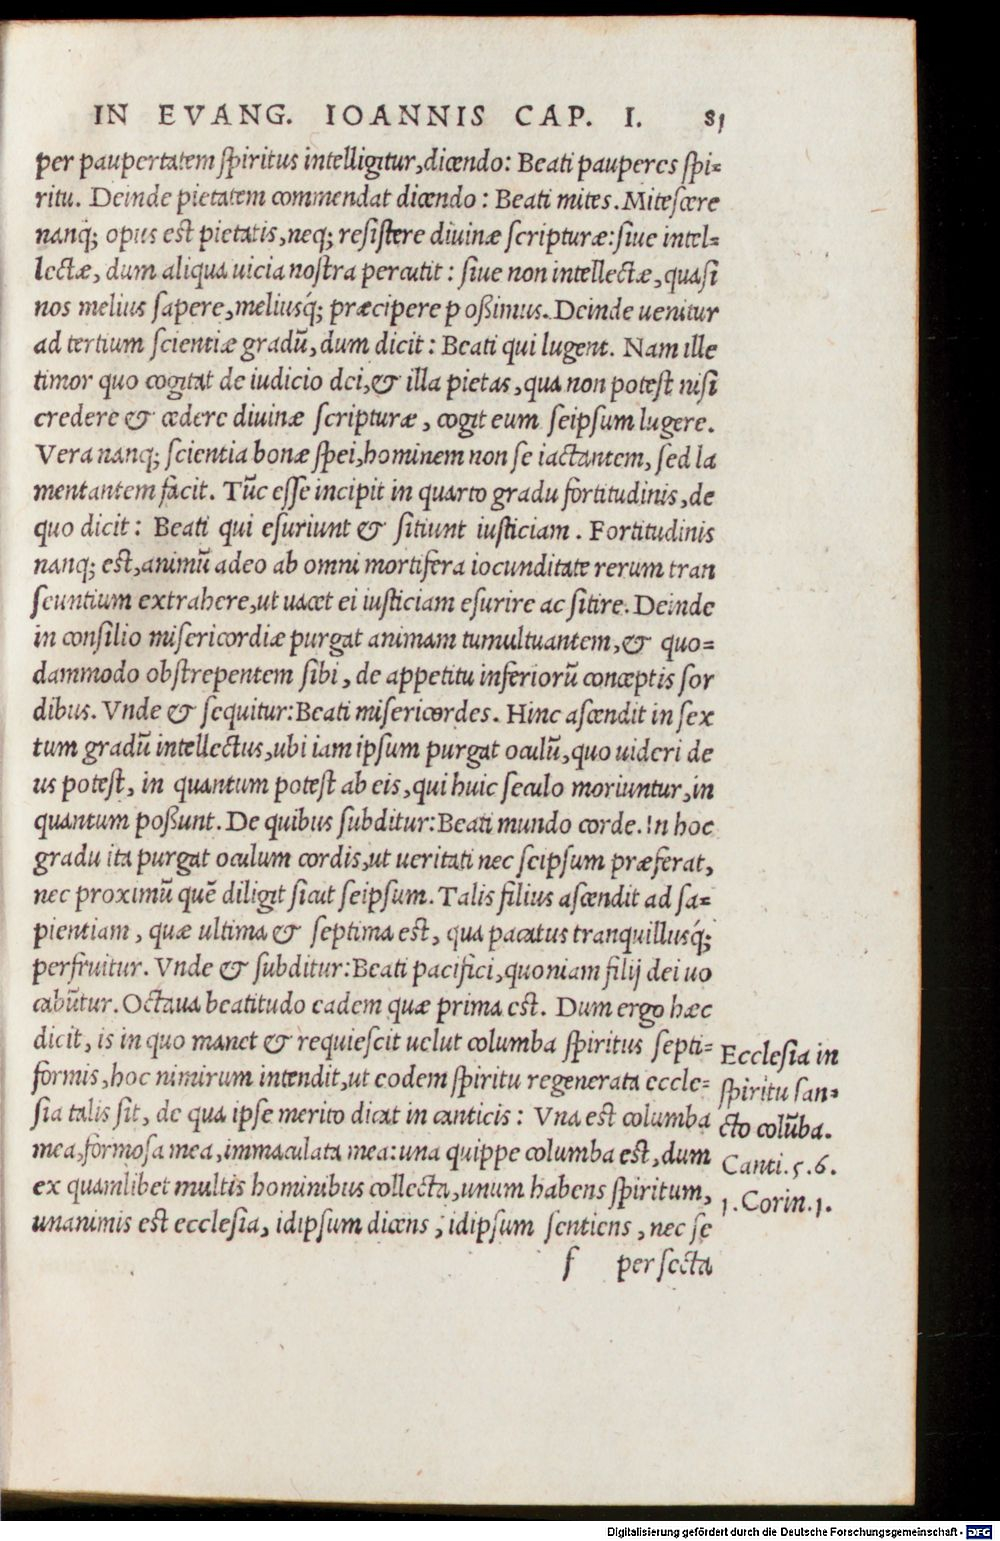 IN EVANG. IOANNIS CAP. I. 81
per paupertatem spiritus intelligitur, dicendo: Beati pauperes spi=
ritu. Deinde pietatem commendat dicendo: Beati mites. Mitescere
nanq; opus est pietatis, neq; resistere diuinæ scripturæ: siue intel=
lectæ, dum aliqua uicia nostra percutit: siue non intellectæ, quasi
nos melius sapere, meliusq́; præcipere possimus. Deinde uenitur
ad tertium scientiæ gradū, dum dicit: Beati qui lugent. Nam ille
timor quo cogitat de iudicio dei, & illa pietas, qua non potest nisi
credere & cedere diuinæ scripturæ, cogit eum seipsum lugere.
Vera nanq; scientia bonæ spei, hominem non se iactantem, sed la
mentantem facit. Tūc esse incipit in quarto gradu fortitudinis, de
quo dicit: Beati qui esuriunt & sitiunt iusticiam. Fortitudinis
nanq; est, animū adeo ab omni mortifera iocunditate rerum tran
seuntium extrahere, ut uacet ei iusticiam esurire ac sitire. Deinde
in consilio misericordiæ purgat animam tumultuantem, & quo=
dammodo obstrepentem sibi, de appetitu inferiorū conceptis sor
dibus. Vnde & sequitur: Beati misericordes. Hinc ascendit in sex
tum gradū intellectus, ubi iam ipsum purgat oculū, quo uideri de
us potest, in quantum potest ab eis, qui huic seculo moriuntur, in
quantum possunt. De quibus subditur: Beati mundo corde. In hoc
gradu ita purgat oculum cordis, ut ueritati nec seipsum præferat,
nec proximū quē diligit sicut seipsum. Talis filius ascendit ad sa=
pientiam, quæ ultima & septima est, qua pacatus tranquillusq́;
perfruitur. Vnde & subditur: Beati pacifici, quoniam filij dei uo
cabūtur. Octaua beatitudo eadem quæ prima est. Dum ergo hæc
dicit, is in quo manet & requiescit uelut columba spiritus septi=
formis, hoc nimirum intendit, ut eodem spiritu regenerata eccle=
sia talis sit, de qua ipse merito dicat in canticis: Vna est columba
mea, formosa mea, immaculata mea: una quippe columba est, dum
ex quamlibet multis hominibus collecta, unum habens spiritum,
unanimis est ecclesia, idipsum dicens, idipsum sentiens, nec se
f per secta
Ecclesia in
spiritu san=
cto colūba.
Canti. 5. 6.
1. Corin. 1.
Digitalisierung gefördert durch die Deutsche Forschungsgemeinschaft - DFG